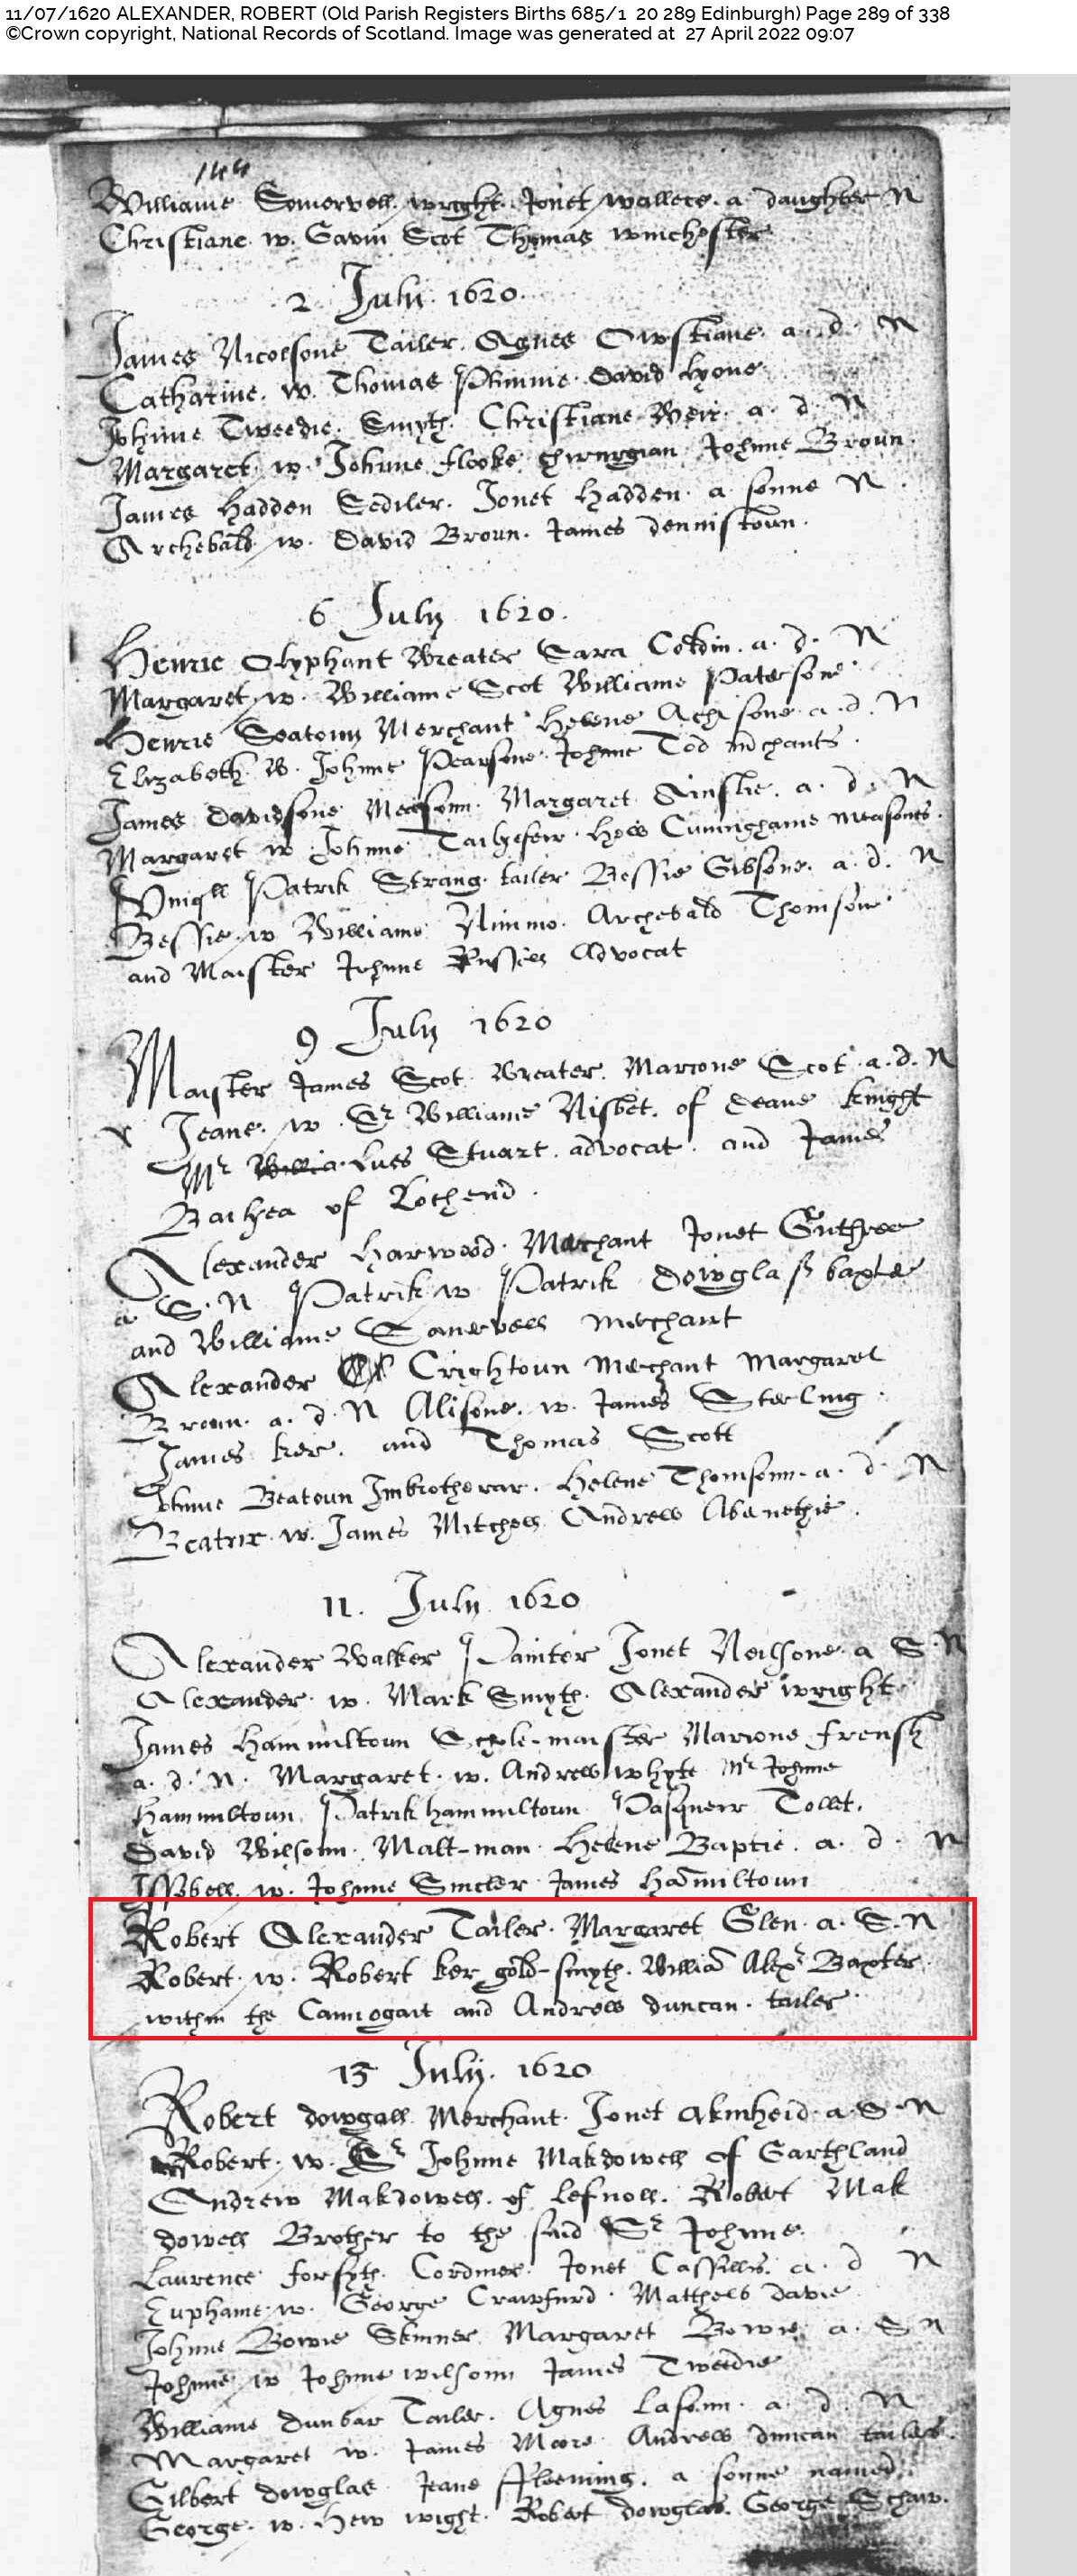 11/07/1620 ALEXANDER, ROBERT (Old Parish Registers Births 685/1 20 289 Edinburgh) Page 289 of 338
©Crown copyright, National Records of Scotland. Image was generated at 27 April 2022 09:07
144
Williame Somervell wright Jonet wallece a daughter N
Christiane w. Gavin Scot Thomas winchester
2 July 1620.
James Nicolsone Tailer. Agnes Owstiane a. d. N
Catharine. w. Thomas Phinnie David Lyone
Johnne Tweedie. Smyth. Christiane Weir. a. d. N
Margaret. w. Johnne flooke chirurgian Johnne Broun.
James Hadden Sediler. Jonet Hadden. a sonne N
Archebald w. David Broun. James dennistoun.
6 July 1620.
Henrie Olyphant Wreater Sara a. d. N
Margaret w. Williame Scot Williame Patersone
Henrie Seatoun Merchant Helene Achisone a. d. N
Elizabeth. W. Johnne Pearsone. Johnne Tod mchants.
James Davidsone Measonn. Margaret Ainslie. a. d. N
Margaret w Johnne Tailyefeir. Hew Cuninghame measones.
Vmqll Patrik Strang. tailer Bessie Gibsone. a. d. N
Bessie w Williame Nimmo. Archebald Thomsone
and Maister Johnne Russell Advocat
9 July 1620
Maister James Scot. Wreater. Marione Scot. a. d. N
x Jeane. w. Sr Williame Nisbet. of Deane knight
Mr Lues Stuart. advocat. and James
of Lochend.
Alexander Harwood. Merchant Jonet Guthree
a. S. N Patrik w Patrik Dowglas baxter
and Williame Somervell merchant
Alexander Crightoun merchant Margaret
Broun. a. d. N Alisone. w. James Sterling
James ker. and Thomas Scott
Johnne Beatoun Imbrotherar. Helene Thomsonn. a. d. N
Beatrix. w. James Mitchell Andrew Abernethie.
11. July 1620
Alexander Walker Painter Jonet Neilsone a S. N
Alexander. w. Mark Smyth. Alexander wright
James Hammiltoun Schole-maister Marione frensh
a. d. N. Margaret. w. Andrew whyte Mr Johnne
Hammiltoun. Patrik hammiltoun
David Wilsonn. Malt-man. Helene Baptie. a. d. N
Issobell. w. Johnne Sincler James Hamiltoun
Robert Alexander Tailer. Margaret Glen. a. S. N
Robert. w. Robert ker gold-smyth. William Alexr Baxter
within the Cannogait and Andrew duncan. tailer
13 July. 1620
Robert dowgall Merchant. Jonet Akinheid. a. S. N
Robert. w. Sr Johnne Makdowell of Garthland
Andrew Makdowell. of Lefnoll. Robert Mak
dowell Brother to the said Sr Johnne.
Laurence forsyth. Cordiner. Jonet Cassillis. a. d N
Euphame. w. George Crawfurd. Matthew davie
Johnne Bowie Skinner Margaret Bowie. a. S N
Johnne w Johnne wilsonn James Tweedie
Williame dunbar Tailer. Agnes Lasonn. a. d. N
Margaret w. James Moore. Andrew duncan tailers.
Gilbert dowglas Jeane ffleeming. a sonne named
George. w. Hew wight. Robert dowglas. George Schaw.